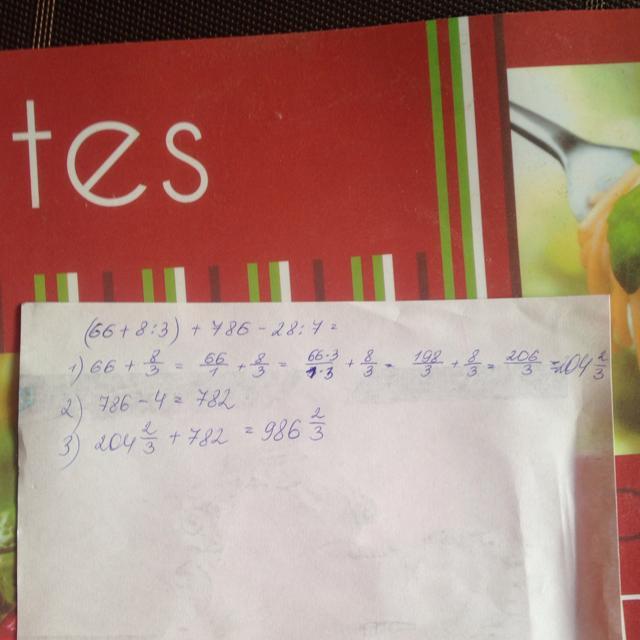 tes
(66+8:3) + 786 - 28:7 =
1) 66 + 8/3 = 66/1 + 8/3 = 66·3/1·3 + 8/3 = 198/3 + 8/3 = 206/3 = 204 2/3
2) 786 - 4 = 782
3) 204 2/3 + 782 = 986 2/3